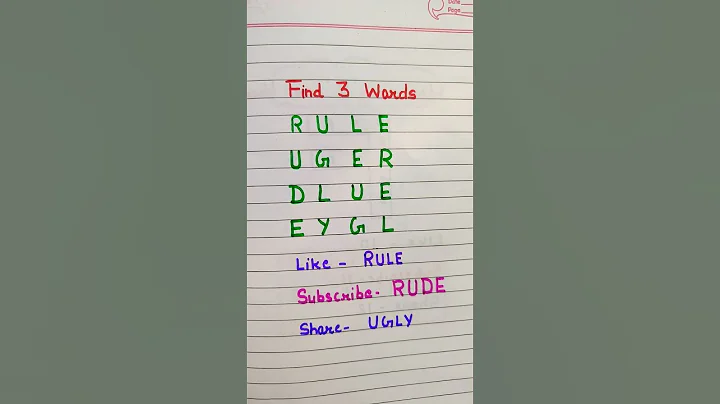 Date
Page
Find 3 Words
R U L E
U G E R
D L U E
E Y G L
Like - RULE
Subscribe- RUDE
Share- UGLY